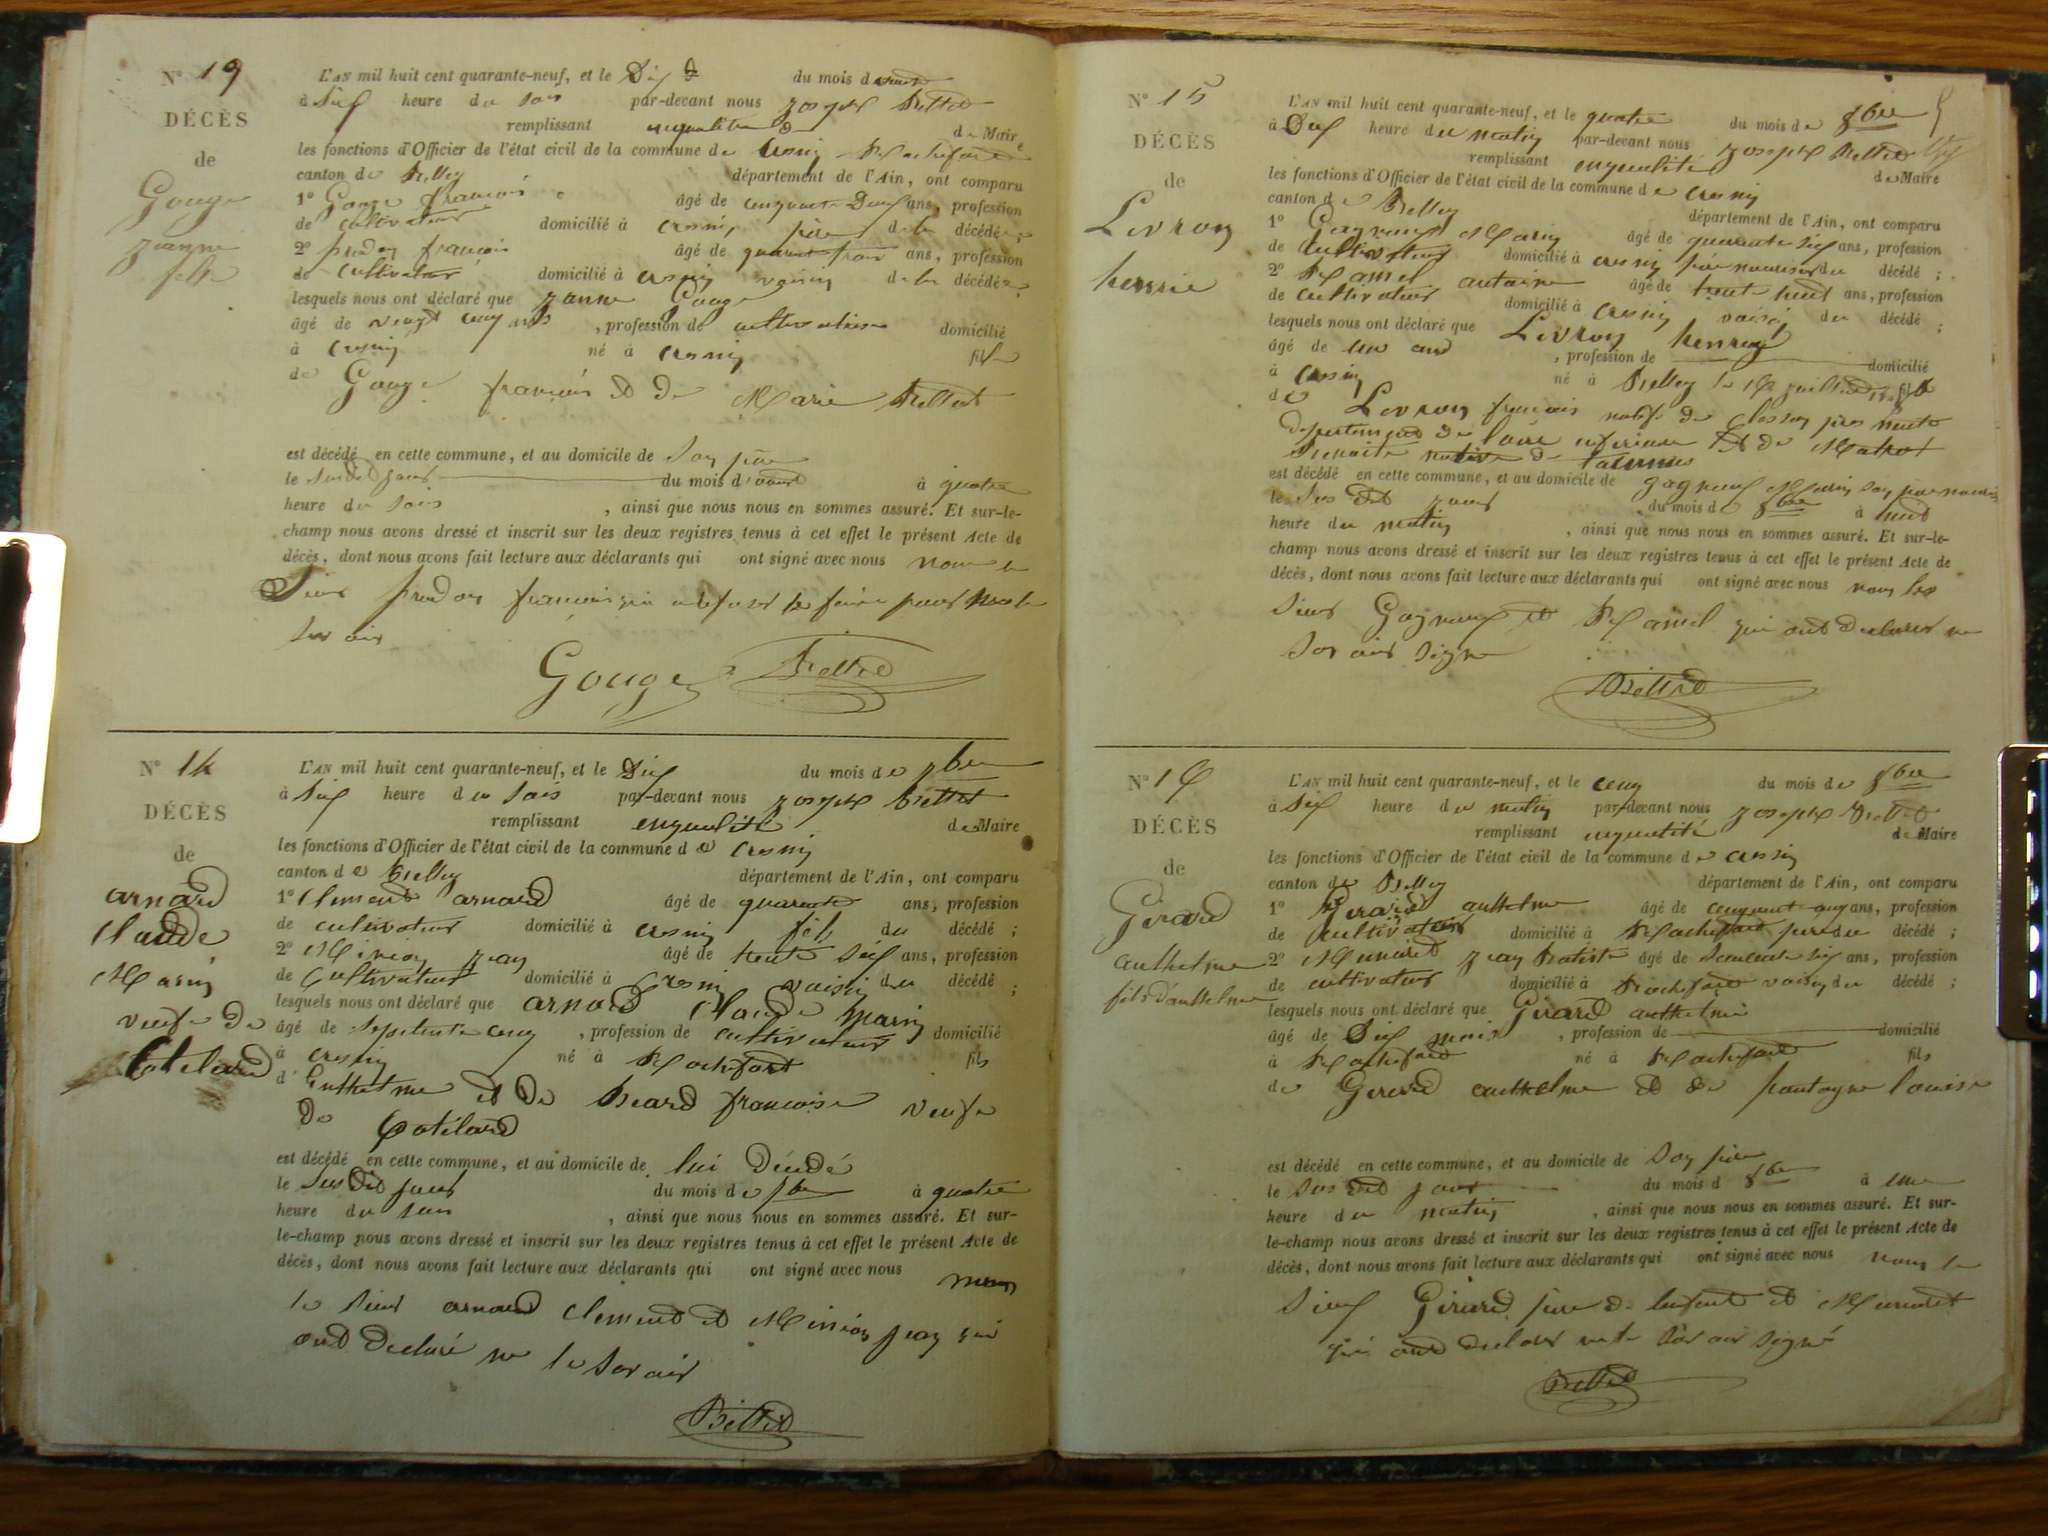 N° 19
DÉCÈS
de
Gouge
jeanne
fille
L'AN mil huit cent quarante-neuf, et le Dix du mois d'
à Six heure du soir par-devant nous joseph Bettet
remplissant enqualité de Maire
les fonctions d'Officier de l'état civil de la commune de Cressin Rochefort
canton de Belley département de l'Ain, ont comparu
1° Gouge francois âgé de cinquante Deux ans, profession
de cultivateur domicilié à cressin père de la décédée ;
2° prudon francois âgé de quarante trois ans, profession
de cultivateur domicilié à cressin voisin de la décédée ;
lesquels nous ont déclaré que jeanne Gouge
âgé de vingt cinq ans , profession de cultivatrice domicilié
à cressin né à cressin fille
de Gouge francois et de Marie Bettet
est décédé en cette commune, et au domicile de son père
le susdit jour du mois d' à quatre
heure du soir , ainsi que nous nous en sommes assuré. Et sur-le-
champ nous avons dressé et inscrit sur les deux registres tenus à cet effet le présent Acte de
décès, dont nous avons fait lecture aux déclarants qui ont signé avec nous non le
Sieur prudon francois qui pour ne le
savoir
Gouge Bettet
N° 14
DÉCÈS
de
arnaud
Claude
Marin
veufe de
Cotilard
L'AN mil huit cent quarante-neuf, et le Dix du mois de 7bre
à Six heure du soir par-devant nous joseph Bettet
remplissant enqualité de Maire
les fonctions d'Officier de l'état civil de la commune de Cressin
canton de Belley département de l'Ain, ont comparu
1° Clement arnaud âgé de quarante ans, profession
de cultivateur domicilié à cressin fils du décédé ;
2° Minion jean âgé de trente six ans, profession
de cultivateur domicilié à Cressin voisin du décédé ;
lesquels nous ont déclaré que arnaud Claude Marin
âgé de septente cinq , profession de cultivateur domicilié
à cressin né à Rochefort fils
d'Enthelme et de Beard francoise veufe
de Cotilard
est décédé en cette commune, et au domicile de lui décédé
le susdit jour du mois de 7bre à quatre
heure du soir , ainsi que nous nous en sommes assuré. Et sur-
le-champ nous avons dressé et inscrit sur les deux registres tenus à cet effet le présent Acte de
décès, dont nous avons fait lecture aux déclarants qui ont signé avec nous non
le sieur arnaud Clement et Minion jean qui
ont declaré ne le savoir
Bettet
N° 15
DÉCÈS
de
Levron
henrie
L'AN mil huit cent quarante-neuf, et le quatre du mois de 8bre
à Dix heure du matin par-devant nous joseph Bettet
remplissant enqualité de Maire
les fonctions d'Officier de l'état civil de la commune de cressin
canton de Belley département de l'Ain, ont comparu
1° Gagneux Marin âgé de quarente six ans, profession
de cultivateur domicilié à cressin père nourisier du décédé ;
2° Ramel antoine âgé de trente neuf ans, profession
de cultivateur domicilié à cressin voisin du décédé ;
lesquels nous ont déclaré que Levron henry
âgé de un ans , profession de domicilié
à cressin né à Belley le juillet fils
de Levron francois natif de Closson pres nente
departement de loire inferieure et de
native de
est décédé en cette commune, et au domicile de gagneux Marin son père nourisier
le sus dit jour du mois de 8bre à neuf
heure du matin , ainsi que nous nous en sommes assuré. Et sur-le-
champ nous avons dressé et inscrit sur les deux registres tenus à cet effet le présent Acte de
décès, dont nous avons fait lecture aux déclarants qui ont signé avec nous non les
sieur Gagneux et Ramel qui ont declarer ne
savoir signe
Bettet
N° 16
DÉCÈS
de
Gérard
anthelme
fils d'anthelme
L'AN mil huit cent quarante-neuf, et le cinq du mois de 8bre
à Six heure du matin par-devant nous joseph Bettet
remplissant enqualité de Maire
les fonctions d'Officier de l'état civil de la commune de cressin
canton de Belley département de l'Ain, ont comparu
1° Gerard anthelme âgé de ans, profession
de cultivateur domicilié à Rochefort père du décédé ;
2° Munaret jean Batiste âgé de soixante six ans, profession
de cultivateur domicilié à Rochefort voisin du décédé ;
lesquels nous ont déclaré que Gérard anthelme
âgé de Dix mois , profession de domicilié
à Rochefort né à Rochefort fils
de Gerard anthelme et de pantagne louise
est décédé en cette commune, et au domicile de son père
le sus dit jour du mois d 8bre à une
heure du matin , ainsi que nous nous en sommes assuré. Et sur-
le-champ nous avons dressé et inscrit sur les deux registres tenus à cet effet le présent Acte de
décès, dont nous avons fait lecture aux déclarants qui ont signé avec nous non le
sieur Girard père de lenfent et Munaret
qui ont declarer savoir signé
Bettet